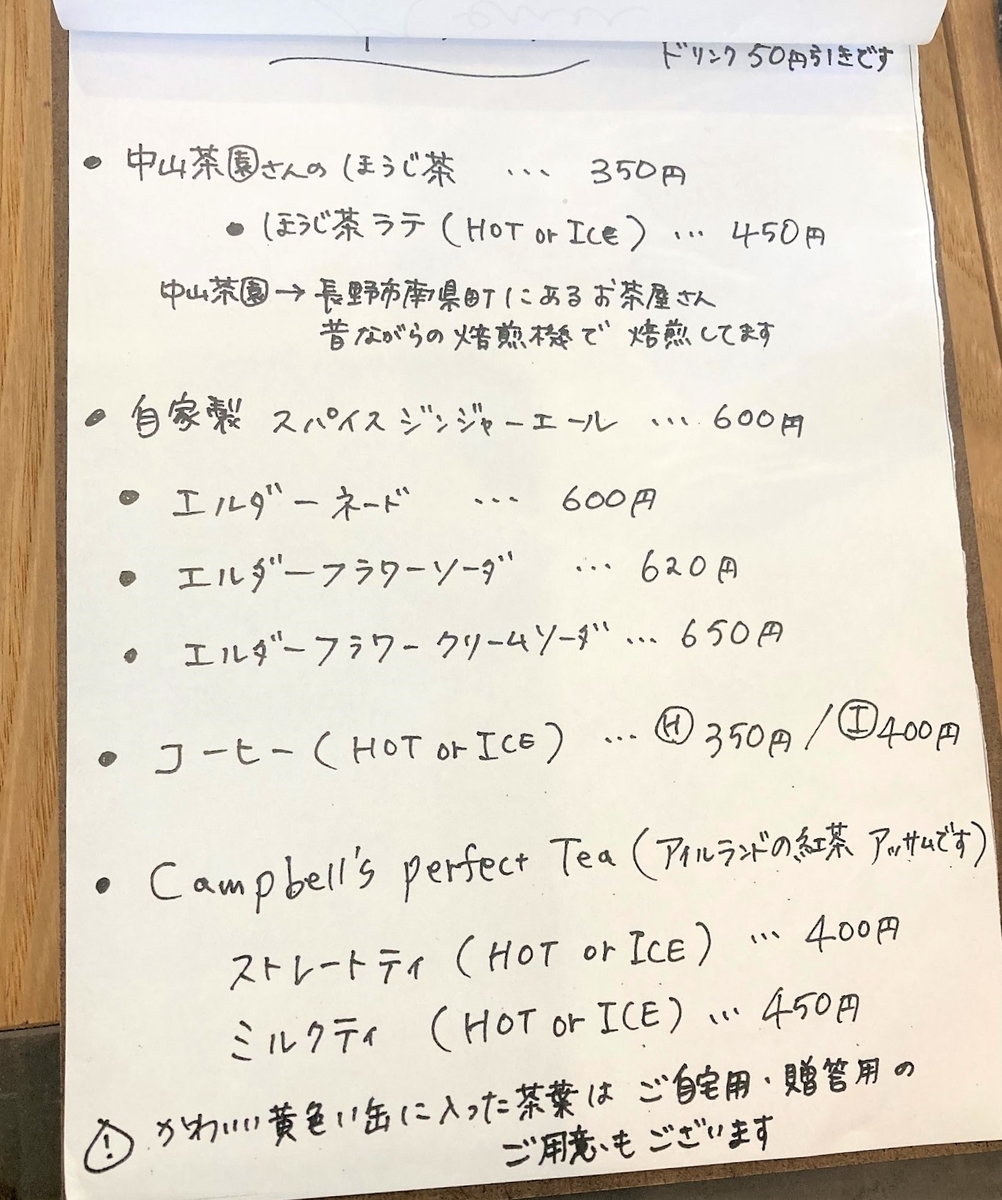 ドリンク 50円引きです
• 中山茶園さんの ほうじ茶 … 350円
• ほうじ茶 ラテ (HOT or ICE) … 450円
中山茶園 → 長野市南県町にあるお茶屋さん
昔ながらの焙煎機で 焙煎してます
• 自家製 スパイスジンジャーエール … 600円
• エルダーネード … 600円
• エルダーフラワーソーダ … 620円
• エルダーフラワー クリームソーダ … 650円
• コーヒー (HOT or ICE) … Ⓗ 350円 / Ⓘ 400円
• Campbell's perfect Tea (アイルランドの紅茶 アッサムです)
ストレートティ (HOT or ICE) … 400円
ミルクティ (HOT or ICE) … 450円
! かわいい黄色い缶に入った茶葉は ご自宅用・贈答用の
ご用意もございます